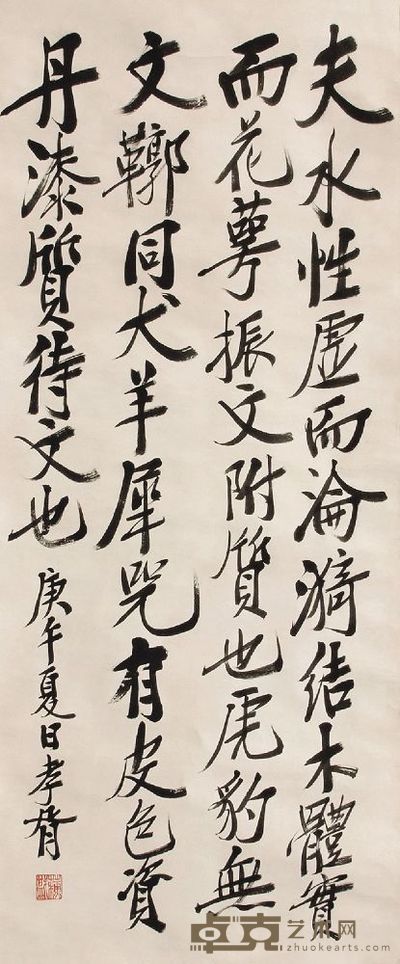 夫水性虛而淪漪結木體實
而花萼振文附質也虎豹無
文鞹同犬羊犀兕有皮色資
丹漆質待文也
庚午夏日孝胥
卓克艺术网
zhuokearts.com